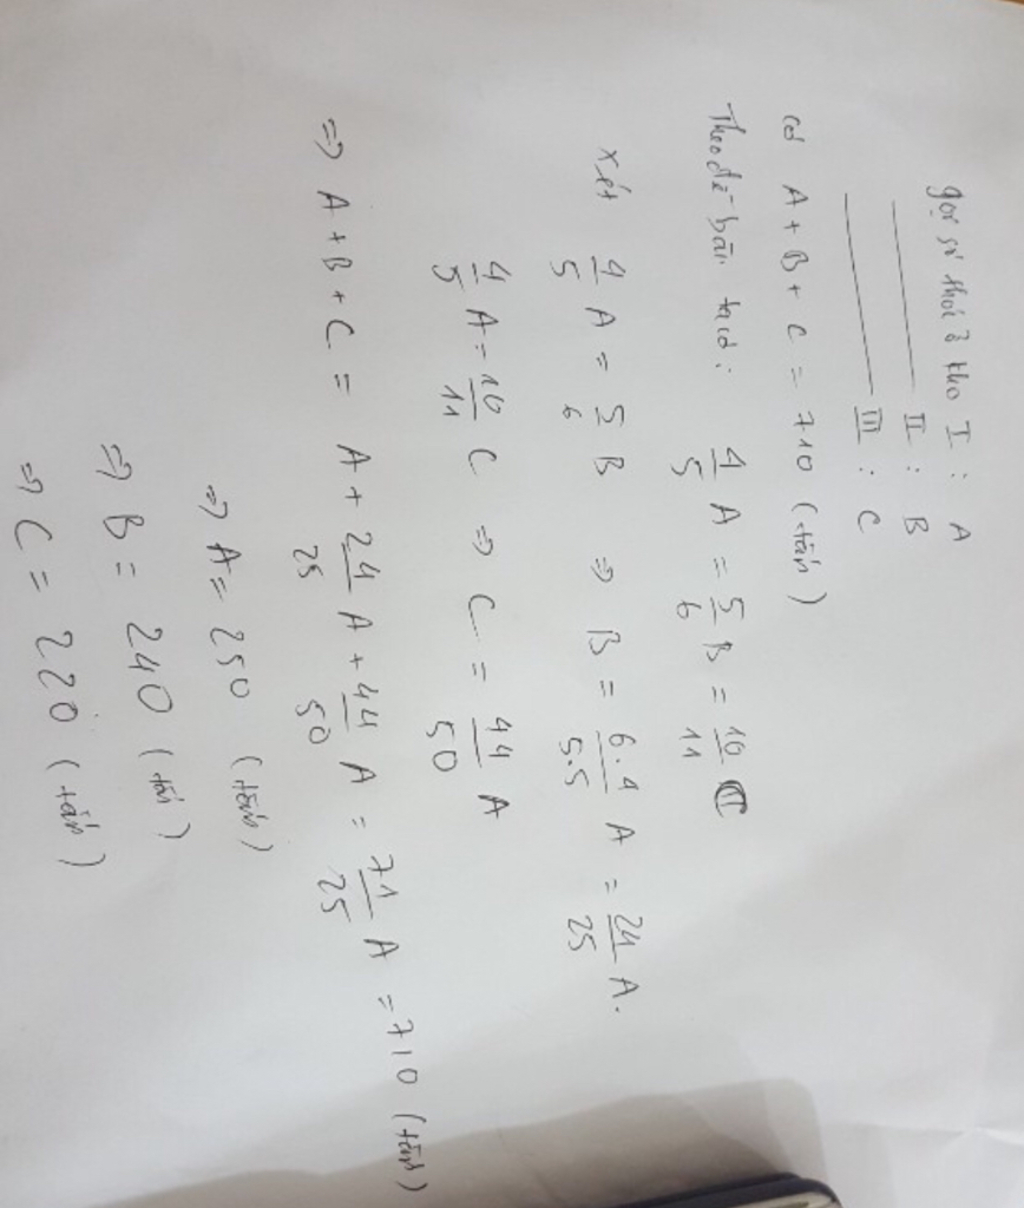 gọi số thóc ở kho I : A
II : B
III : C
có A + B + C = 710 (tấn)
Theo đề bài ta có : 4/5 A = 5/6 B = 10/11 C
xét 4/5 A = 5/6 B => B = 6.4/5.5 A = 24/25 A.
4/5 A = 10/11 C => C = 44/50 A
=> A + B + C = A + 24/25 A + 44/50 A = 71/25 A = 710 (tấn)
=> A = 250 (tấn)
=> B = 240 (tấn)
=> C = 220 (tấn)